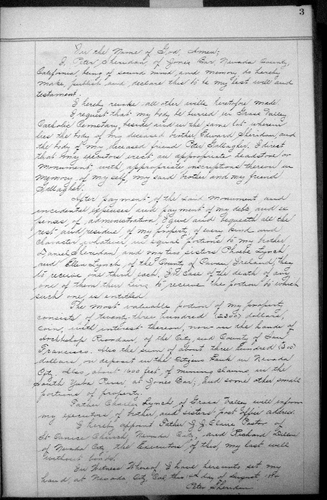 3
In the Name of God, Amen;
I, Peter Sheridan of Jones Bar, Nevada County,
California, being of sound mind and memory do hereby
make, publish and declare this to be my last will and
testament.
I hereby revoke all other wills heretofore made
I request that my body be buried in Grass Valley
Catholic Cemetery, beside and in the same lot wherein
lies the body of my deceased brother Edward Sheridan, and
the body of my deceased friend Peter Gallagher. I direct
that my executors erect an appropriate headstone or
monument with appropriate inscriptions thereon in
memory of my self, my said brother and my friend
Gallagher.
After payment of the said monument and
incidental expenses and payment of my debts and ex-
penses of administration I give and bequeath all the
rest and residue of my property of every kind and
character whatever in equal portions to my brother
Daniel Sheridan, and my two sisters Lynch,
and Ellen Lynch of the County of Ireland, they
to receive one third each. In case of the death of any
one of them their heirs to receive the portion to which
such one is entitled
The most valuable portion of my property
consists of twenty three hundred (2300) dollars,
coin, with interest thereon, now in the hands of
Archbishop Riordan, of the City and County of San
Francisco. Also the sum of three hundred
dollars on deposit in the Citizens Bank in Nevada
City. Also, 1600 feet of mining claims in the
South Yuba River at Jones Bar, and some other small
portions of property.
Father Charles Lynch of Grass Valley will inform
my executors of brother and sisters post office address
I hereby appoint Father Pastor of
St Church, Nevada City, and Richard
of Nevada City, the Executors of this, my last will
without bonds.
In Witness Whereof, I have hereunto set my
hand at Nevada City, Cal. this day of August
Peter Sheridan